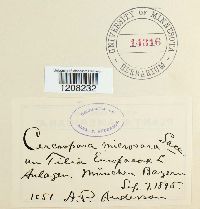 UNIVERSITY OF MINNESOTA
14316
HERBARIUM
1208232
Cercospora microsora Sacc
on Tilia Europaea L
Anlagen. München Bayern
Sep. 7, 1895
1051 A.P. Anderson